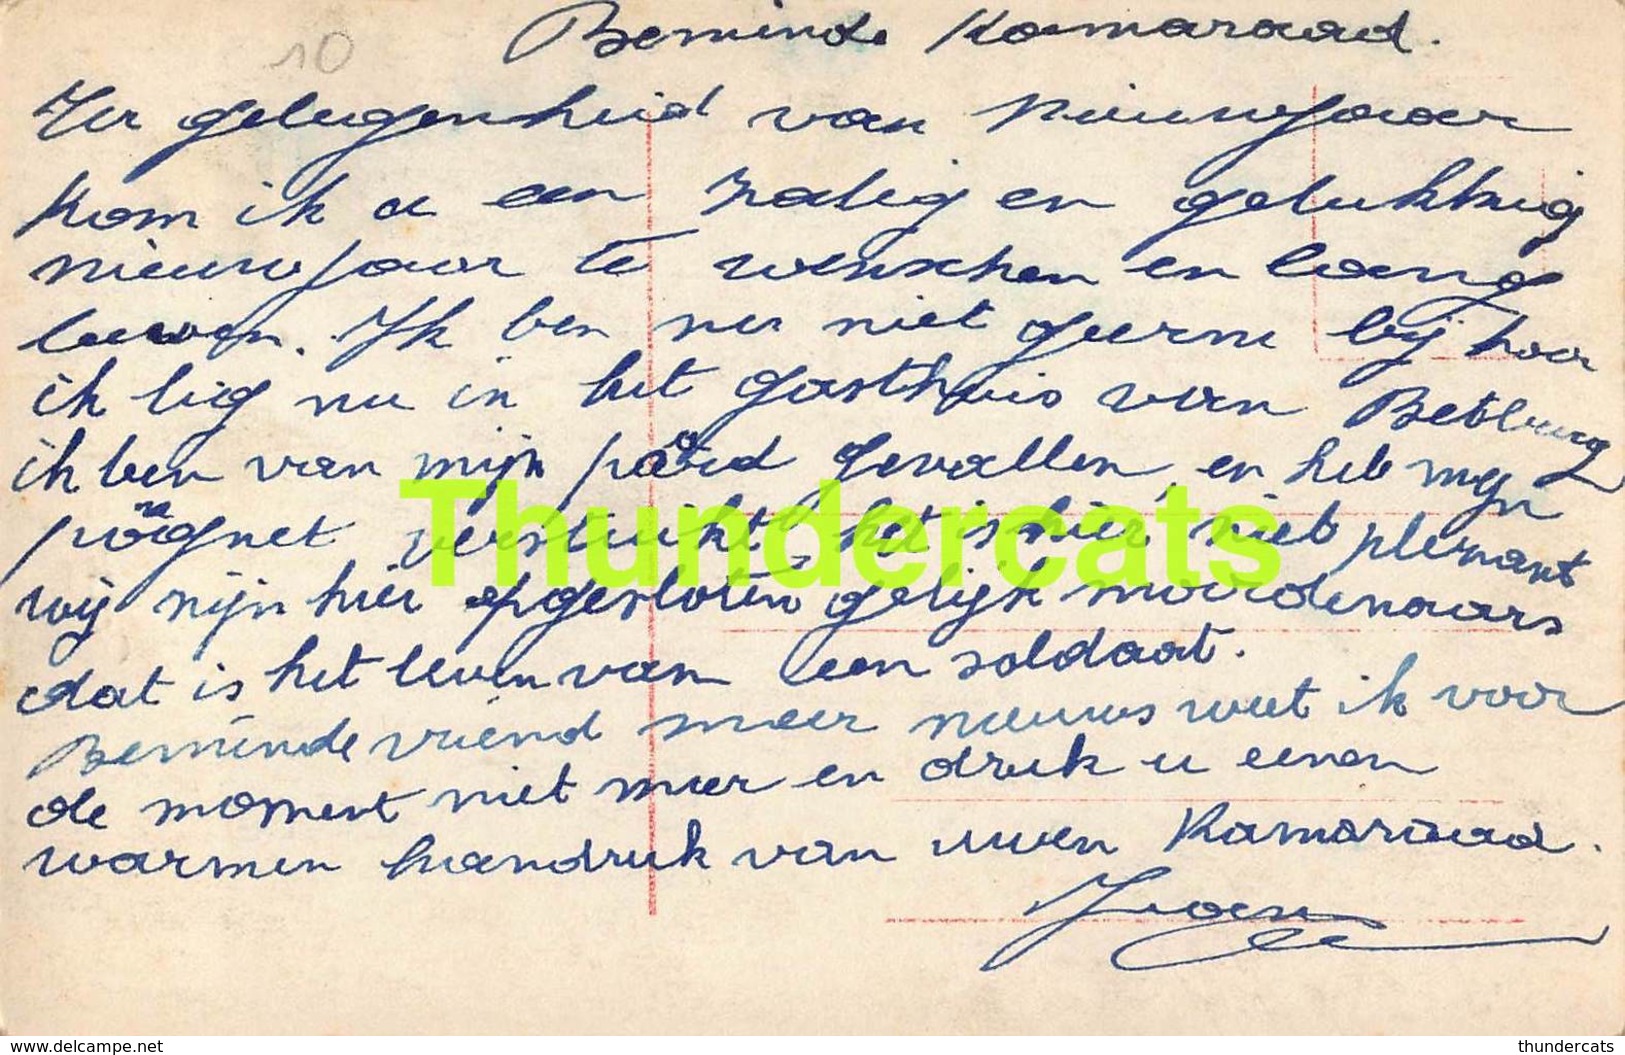 10
Beminde Kamaraad.
Ter gelegenheid van nieuwjaar
kom ik u een zalig en gelukkig
nieuwjaar te wenschen en lang
leeven. Ik ben nu niet geerne bij hoor
ik lig nu in het gasthuis van Bedburg
ik ben van mijn paard gevallen, en heb mijn
pögnet verstuikt, het is hier niet plezant
wij zijn hier opgesloten gelijk moordenaars
dat is het leven van een soldaat.
Beminde vriend meer nieuws weet ik voor
de moment niet meer en druk u eenen
warmen handruk van uwen Kamaraad.
Thundercats
www.delcampe.net
thundercats